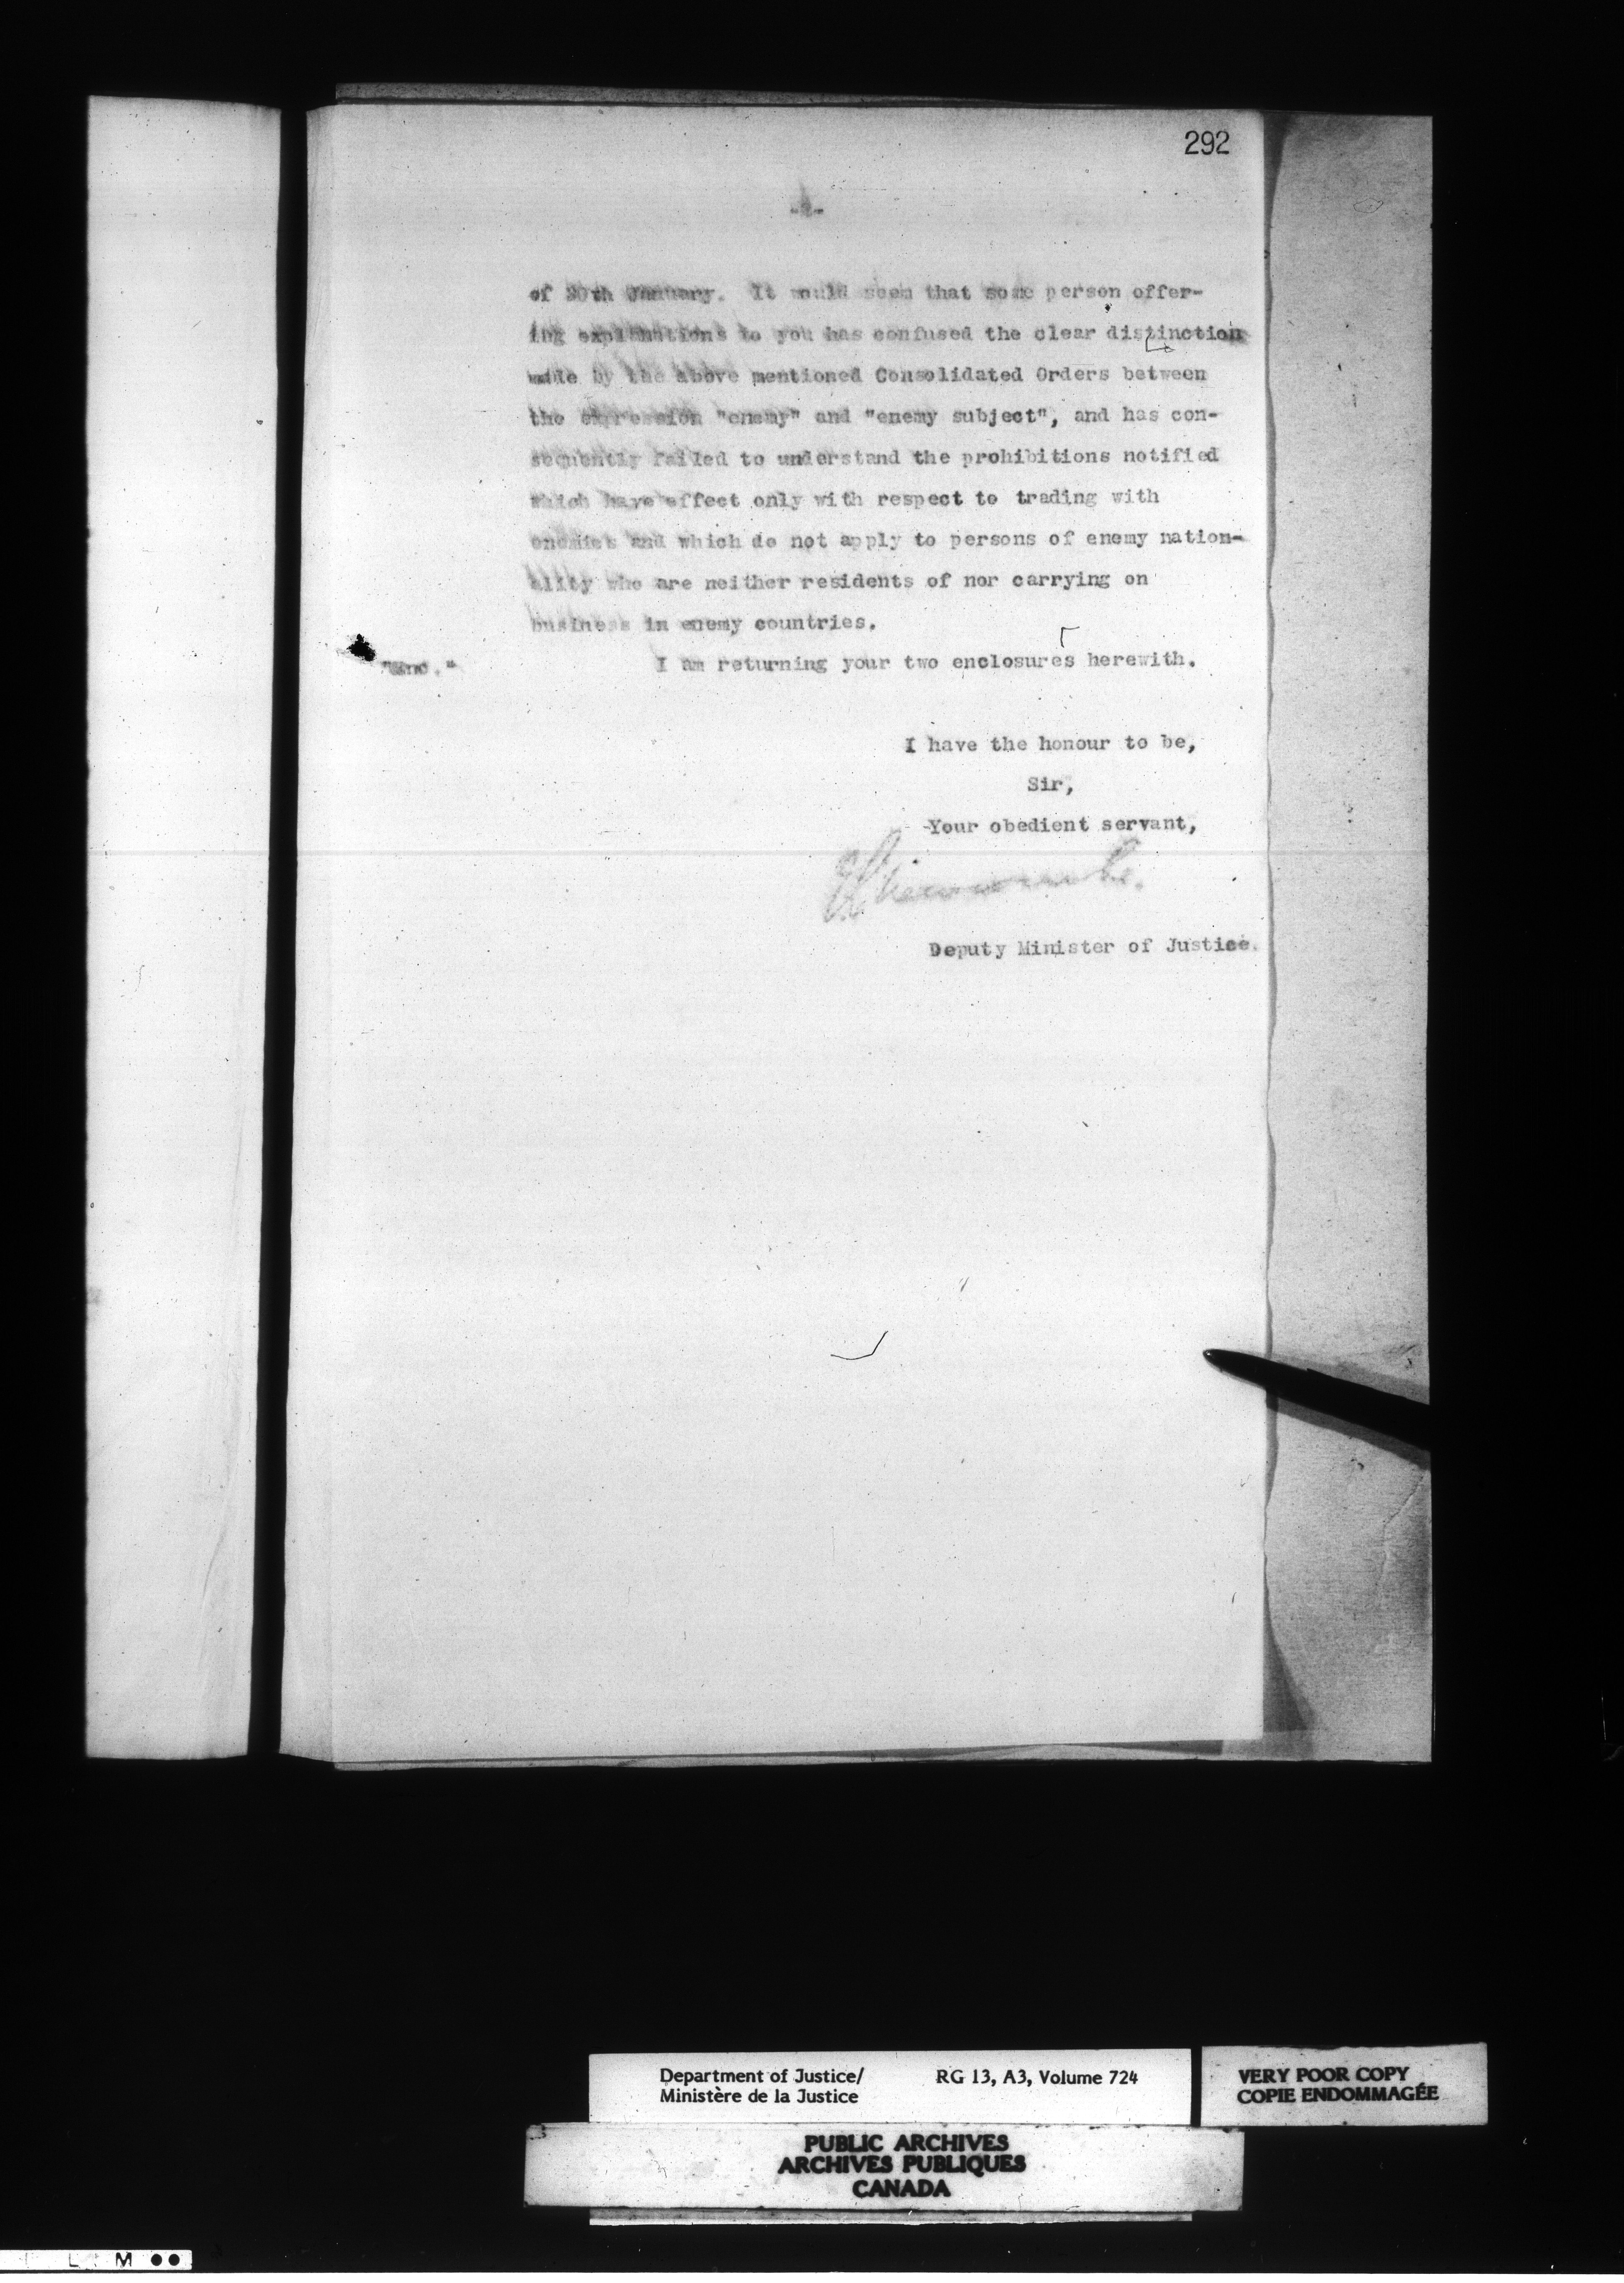 292
of 20th January. It would seem that some person offer-
ing explanations to you has confused the clear distinction
made by the above mentioned Consolidated Orders between
the expression "enemy" and "enemy subject", and has con-
sequently failed to understand the prohibitions notified
which have effect only with respect to trading with
enemies and which do not apply to persons of enemy nation-
ality who are neither residents of nor carrying on
business in enemy countries.
I am returning your two enclosures herewith.
I have the honour to be,
Sir,
Your obedient servant,
Deputy Minister of Justice.
Department of Justice/
Ministère de la Justice
RG 13, A3, Volume 724
VERY POOR COPY
COPIE ENDOMMAGÉE
PUBLIC ARCHIVES
ARCHIVES PUBLIQUES
CANADA
L M